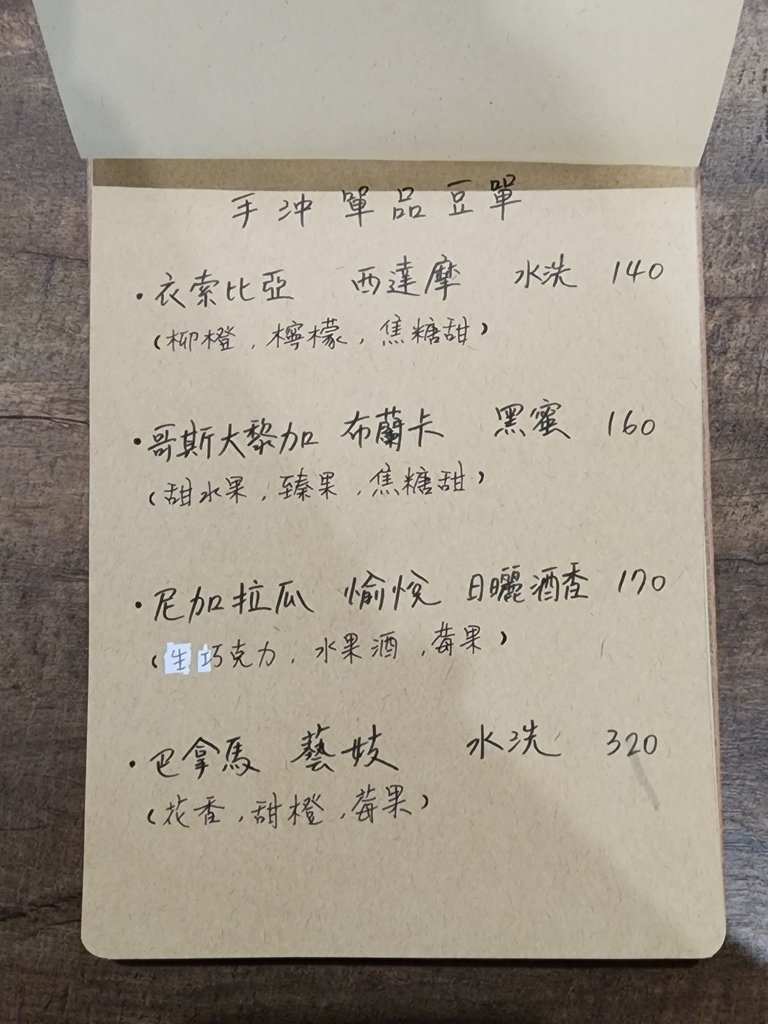 手沖 單品豆單
・衣索比亞 西達摩 水洗 140
(柳橙, 檸檬, 焦糖甜)
・哥斯大黎加 布蘭卡 黑蜜 160
(甜水果, 臻果, 焦糖甜)
・尼加拉瓜 愉悅 日曬酒香 170
(生巧克力, 水果酒, 莓果)
・巴拿馬 藝妓 水洗 320
(花香, 甜橙, 莓果)